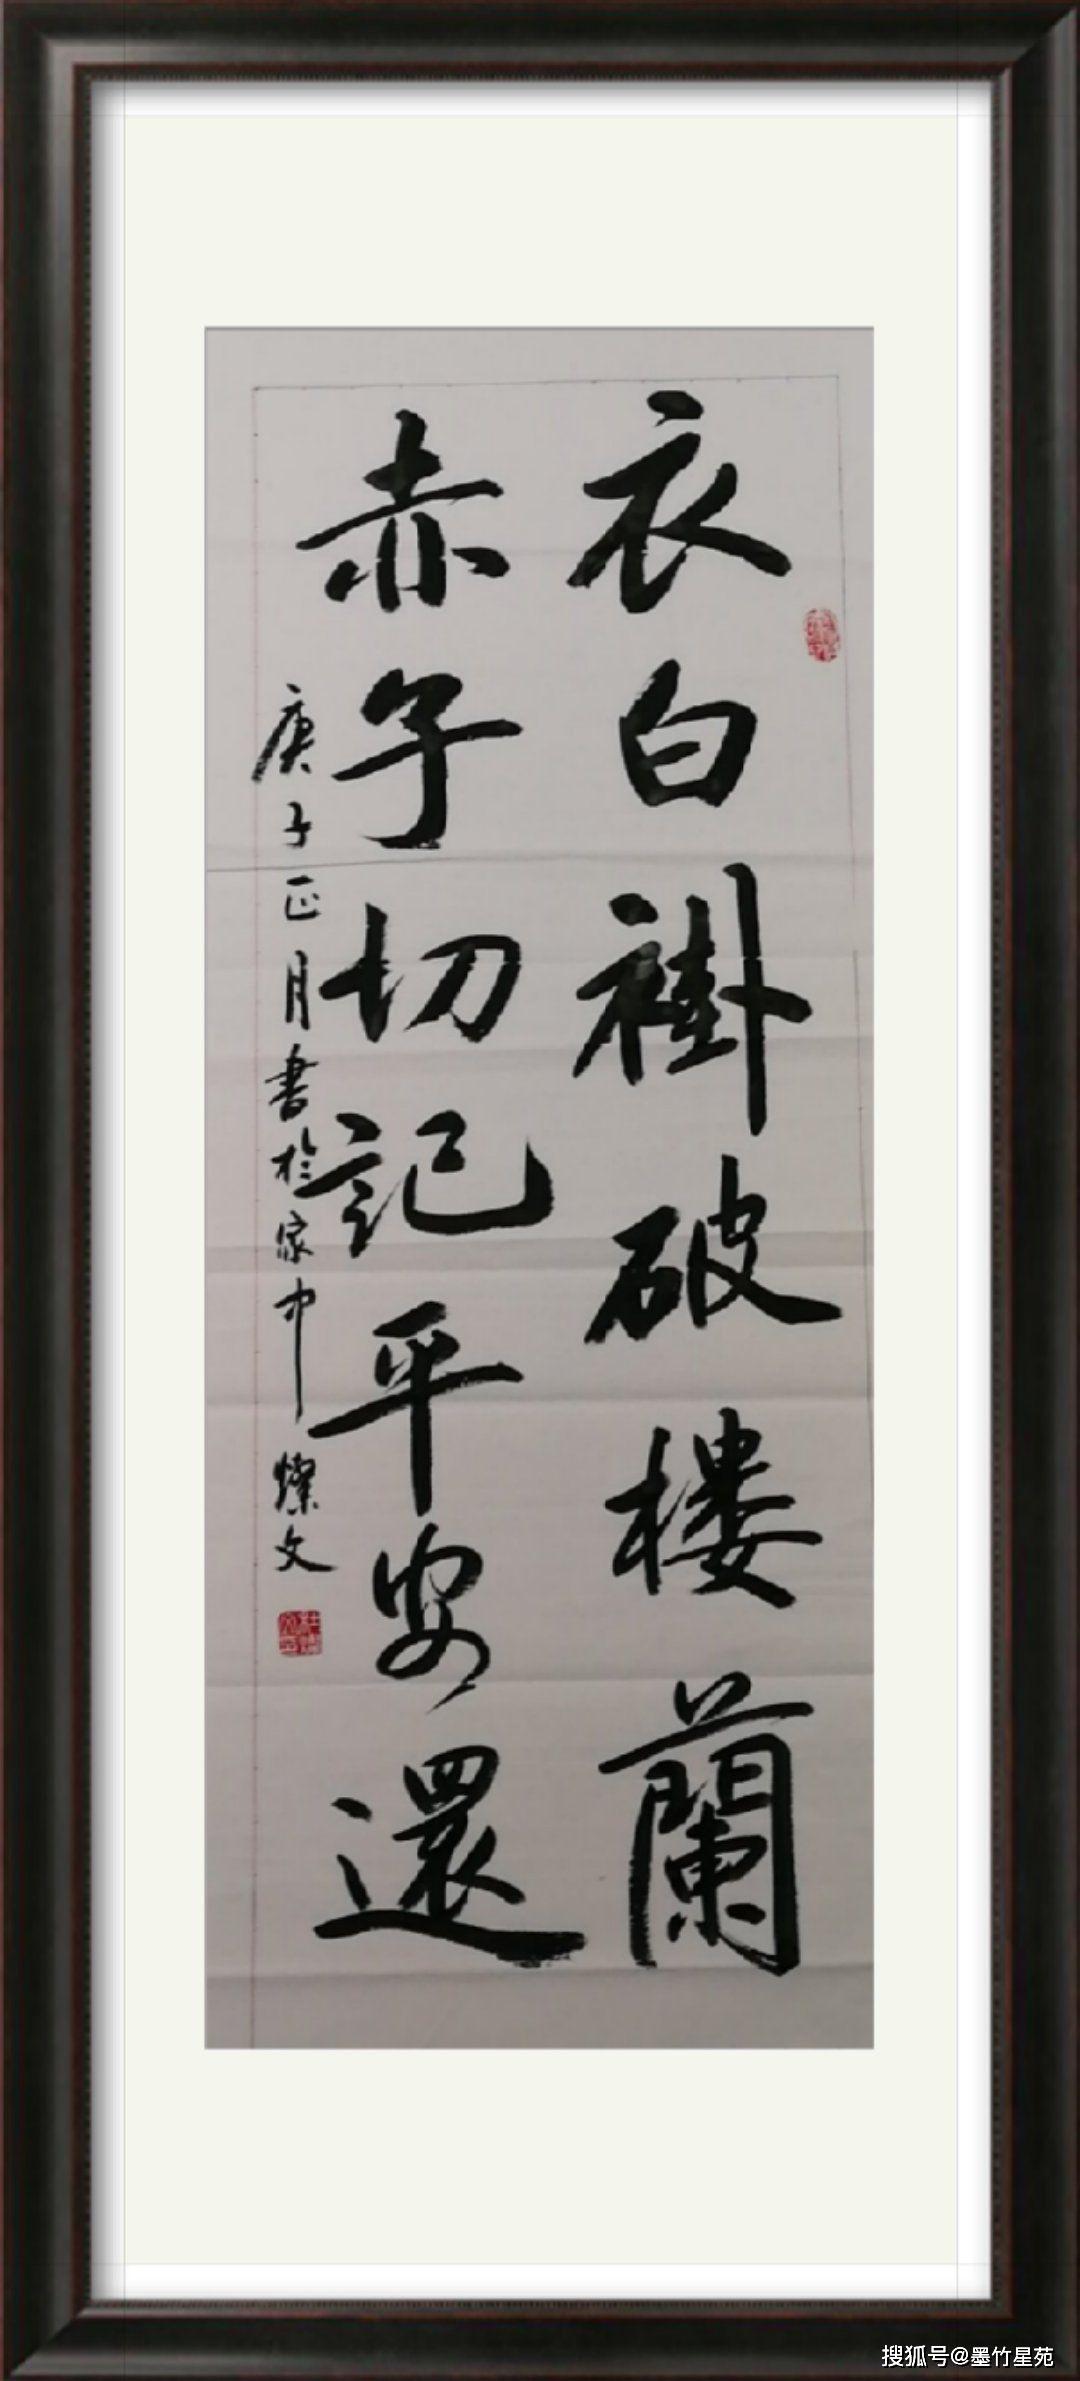 衣白褂破樓蘭
赤子切記平安還
庚子正月書於家中燦文
搜狐号@墨竹星苑